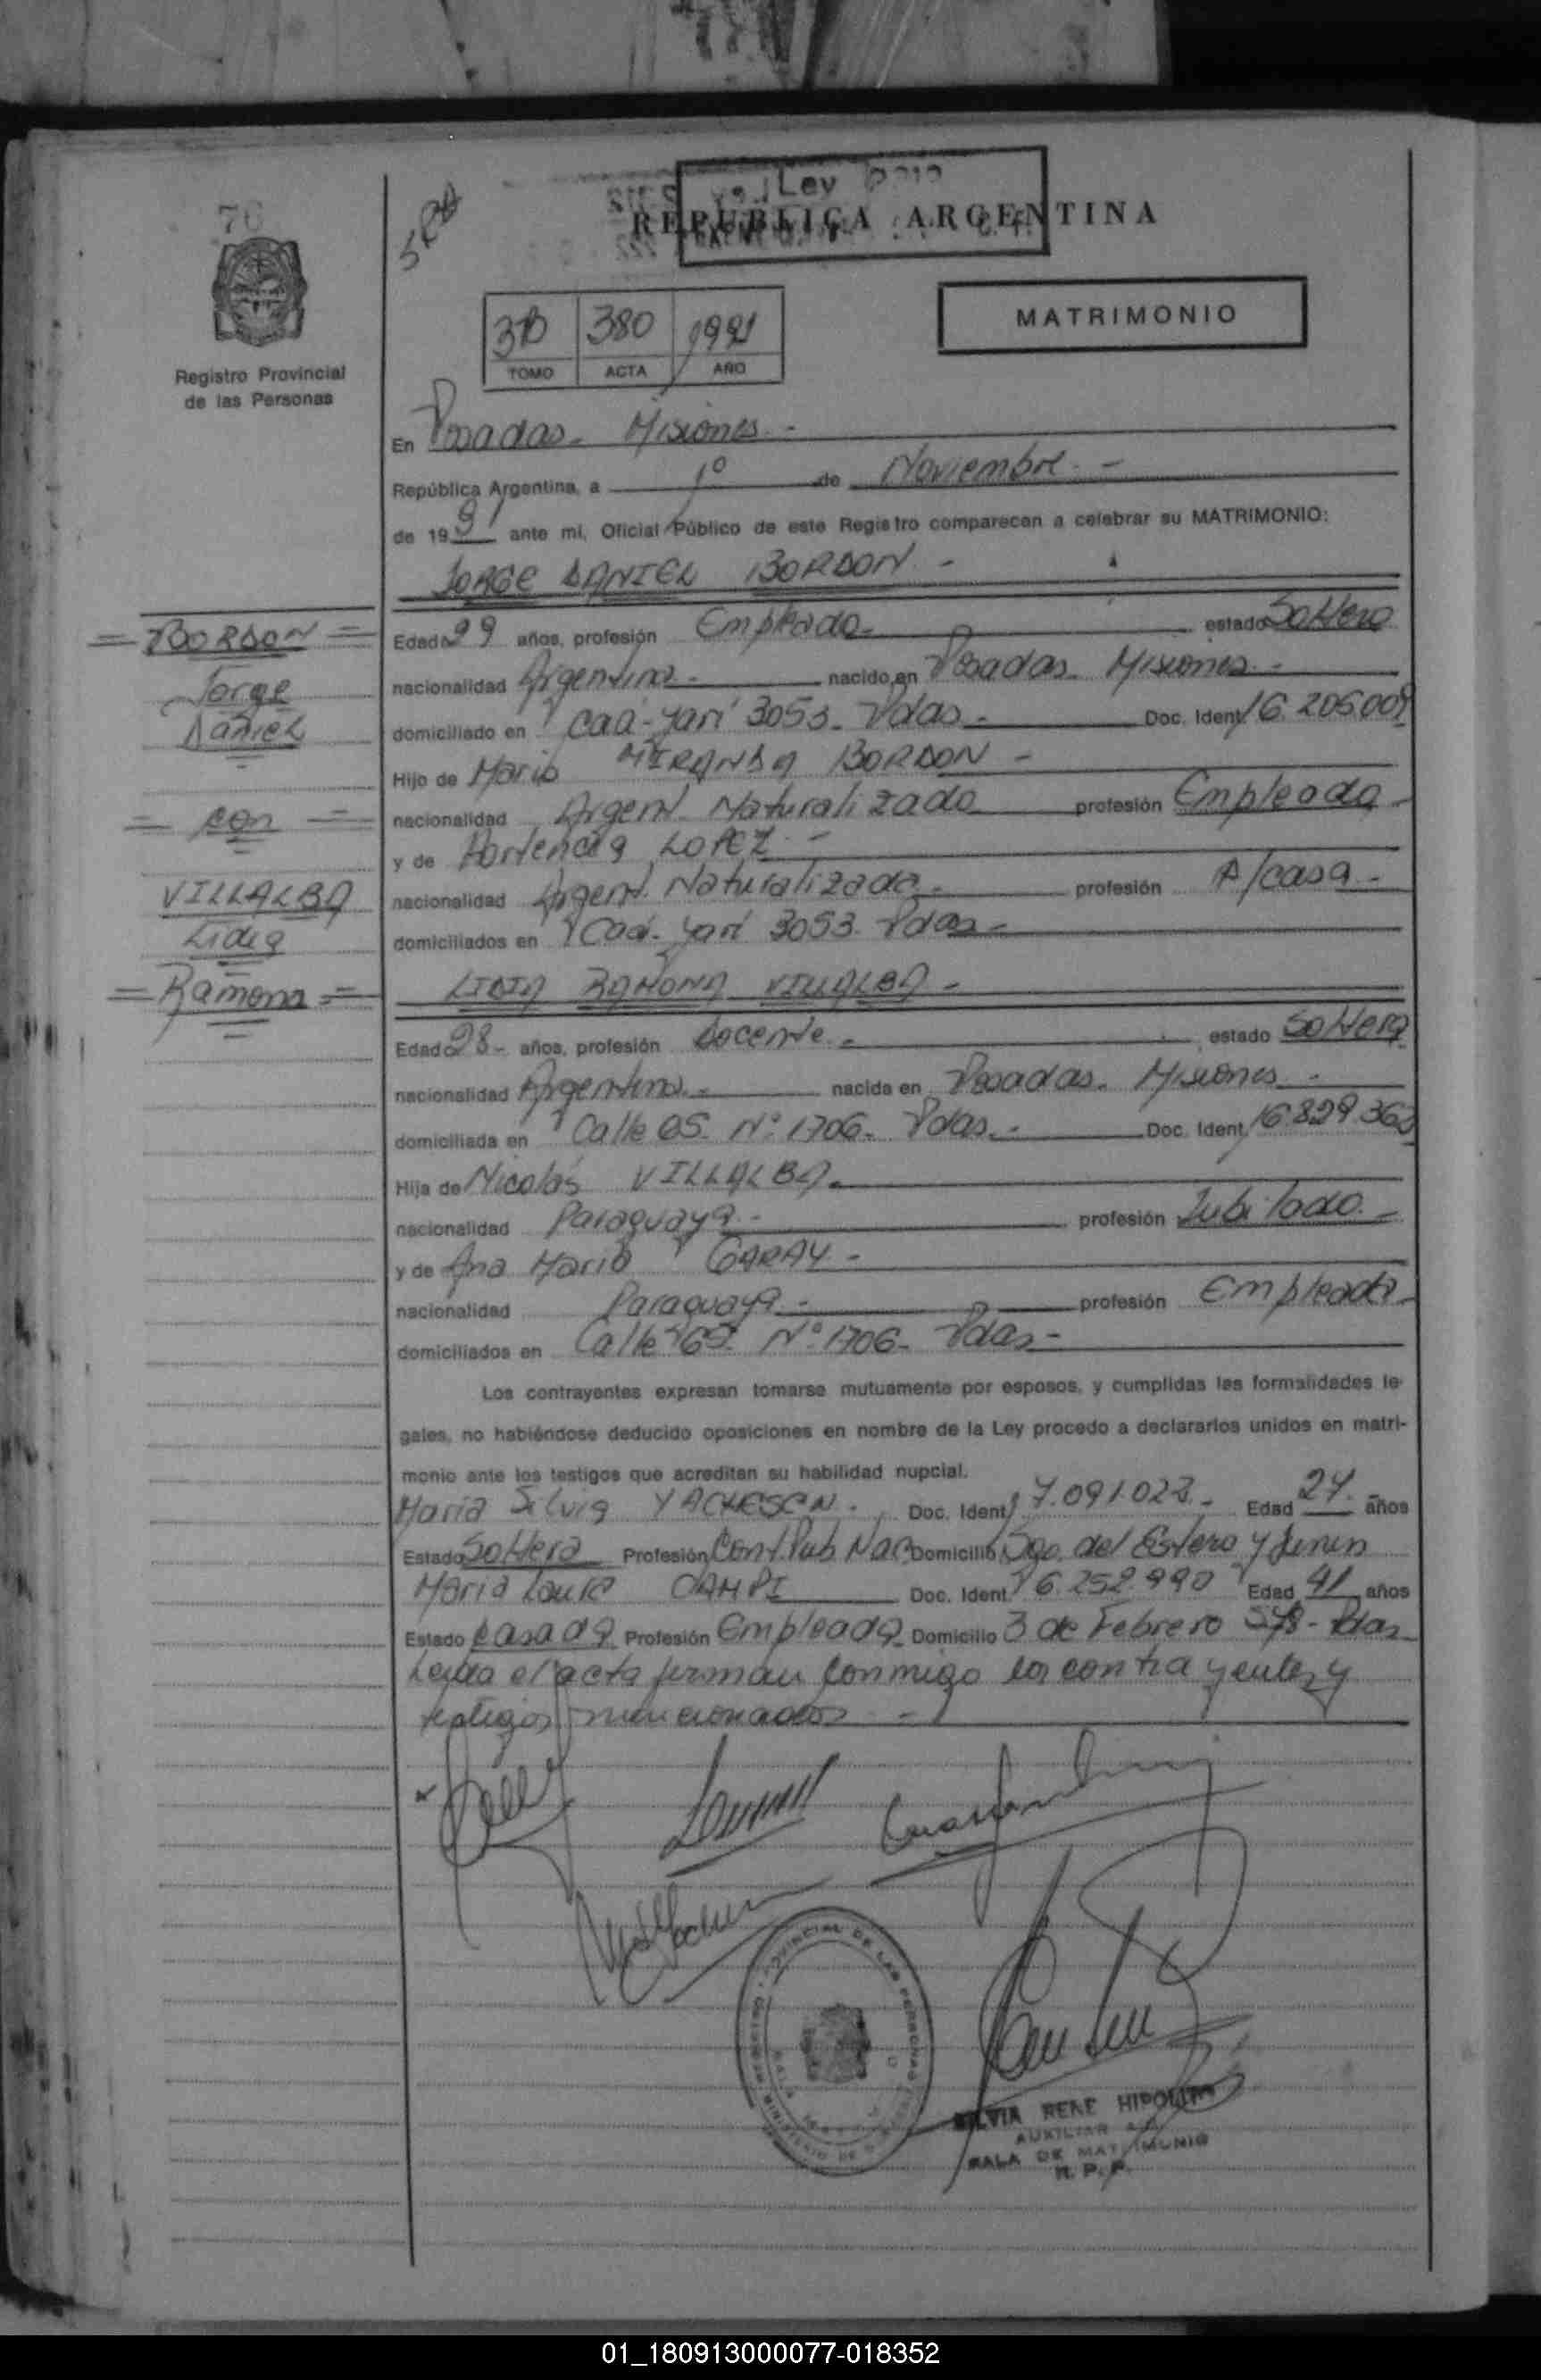 76
Ley
REPUBLICA ARGENTINA
MATRIMONIO
380 1991
TOMO ACTA AÑO
Registro Provincial
de las Personas
En Posadas - Misiones -
República Argentina, a 1º de Noviembre -
de 1991 ante mi, Oficial Público de este Registro comparecen a celebrar su MATRIMONIO:
JORGE DANIEL BORDON -
= BORDON =
Jorge
Daniel
= con =
VILLALBA
Lidia
= Ramona =
Edad 29 años, profesión Empleado - estado Soltero
nacionalidad Argentina - nacido en Posadas - Misiones -
domiciliado en Caá-Yarí 3053 - Pdas - Doc. Ident. 16.205.009
Hijo de Mario MIRANDA BORDON -
nacionalidad Argent. Naturalizado profesión Empleado -
y de Hortencia LOPEZ -
nacionalidad Argent. Naturalizada - profesión A/casa -
domiciliados en Caá-Yarí 3053 - Pdas -
LIDIA RAMONA VILLALBA -
Edad 28 - años, profesión Docente - estado Soltera
nacionalidad Argentina - nacida en Posadas - Misiones -
domiciliada en Calle 65 - Nº 1706 - Pdas - Doc. Ident. 16.829.363
Hija de Nicolás VILLALBA -
nacionalidad Paraguaya - profesión Jubilado -
y de Ana María GARAY -
nacionalidad Paraguaya - profesión Empleada -
domiciliados en Calle 65 - Nº 1706 - Pdas -
Los contrayentes expresan tomarse mutuamente por esposos, y cumplidas las formalidades le-
gales, no habiéndose deducido oposiciones en nombre de la Ley procedo a declararlos unidos en matri-
monio ante los testigos que acreditan su habilidad nupcial.
María Silvia YACHESEN - Doc. Ident. 17.091.022 - Edad 24 - años
Estado Soltera Profesión Cont. Pub. Nac. Domicilio Sgo. del Estero y Junin
María Laura CAMPI Doc. Ident. 6.252.990 Edad 41 años
Estado Casada Profesión Empleada - Domicilio 3 de Febrero - Pdas -
Leída el acta firman conmigo los contrayentes y
testigos mencionados -
SILVIA RENE HIPOLITO
AUXILIAR
SALA DE MATRIMONIO
R. P. P.
01_180913000077-018352